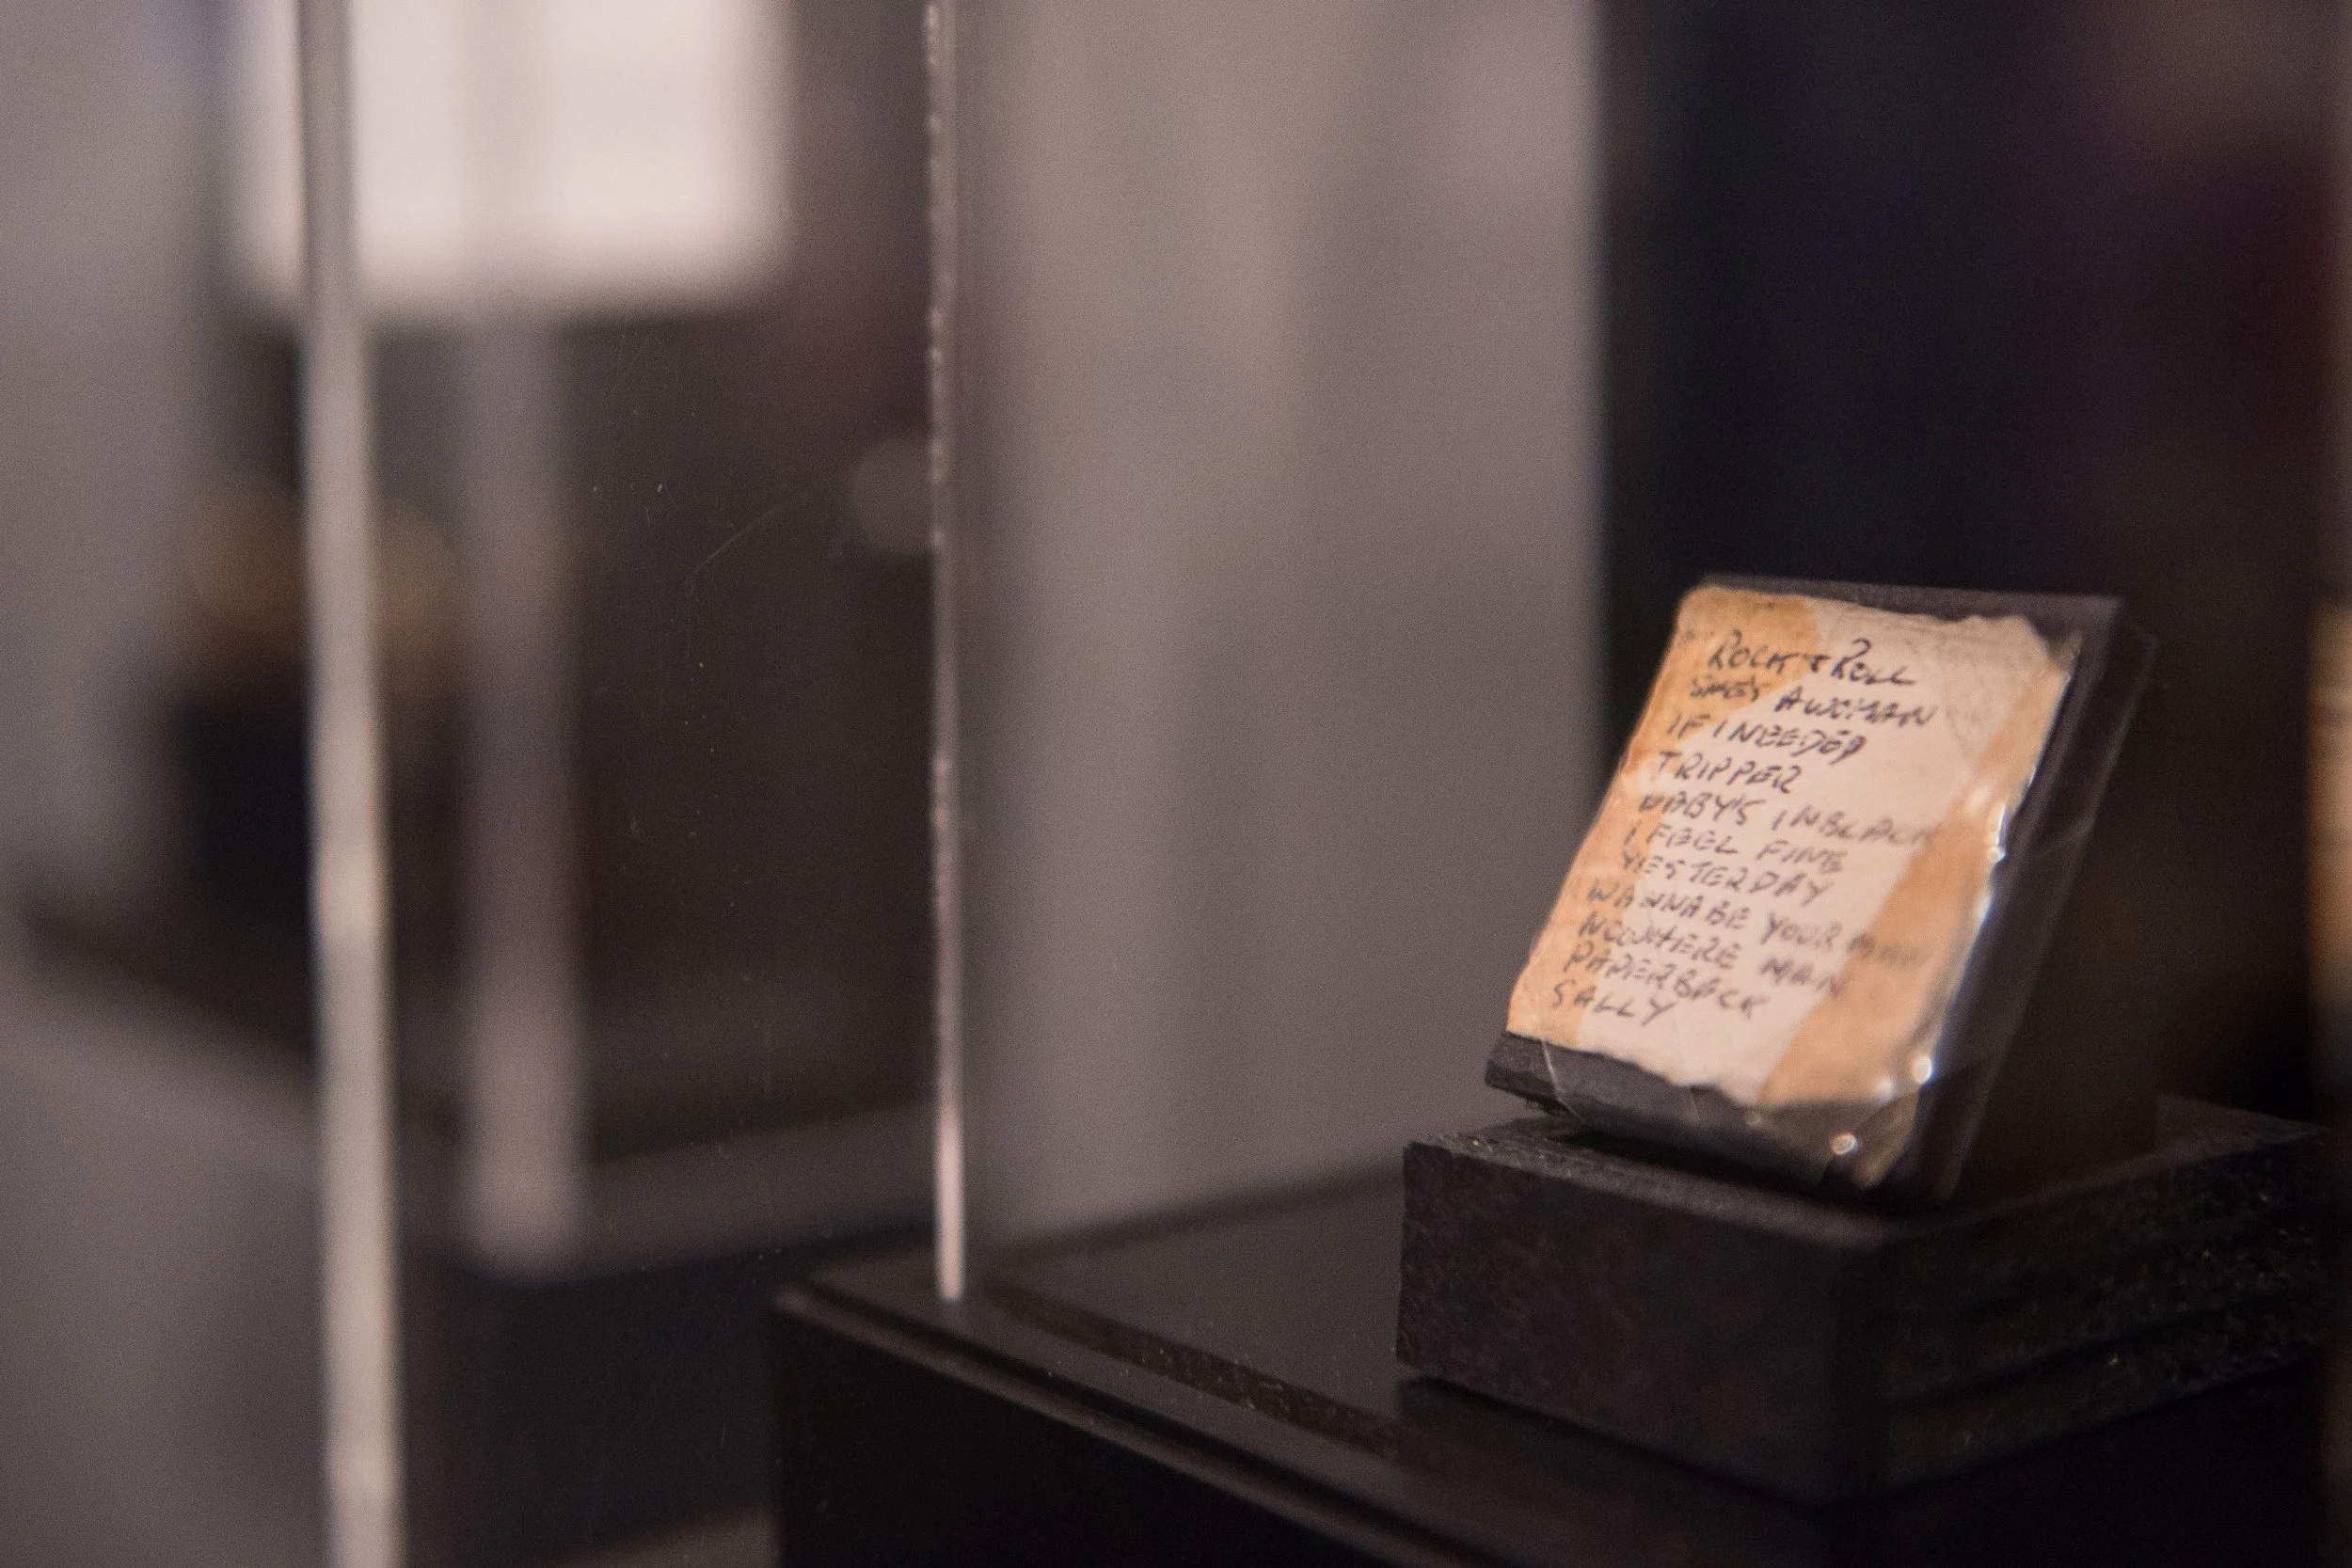 ROCK + ROLL
SHE'S A WOMAN
IF I NEEDED
TRIPPER
BABY'S IN BLACK
I FEEL FINE
YESTERDAY
WANNA BE YOUR MAN
NOWHERE MAN
PAPERBACK
SALLY